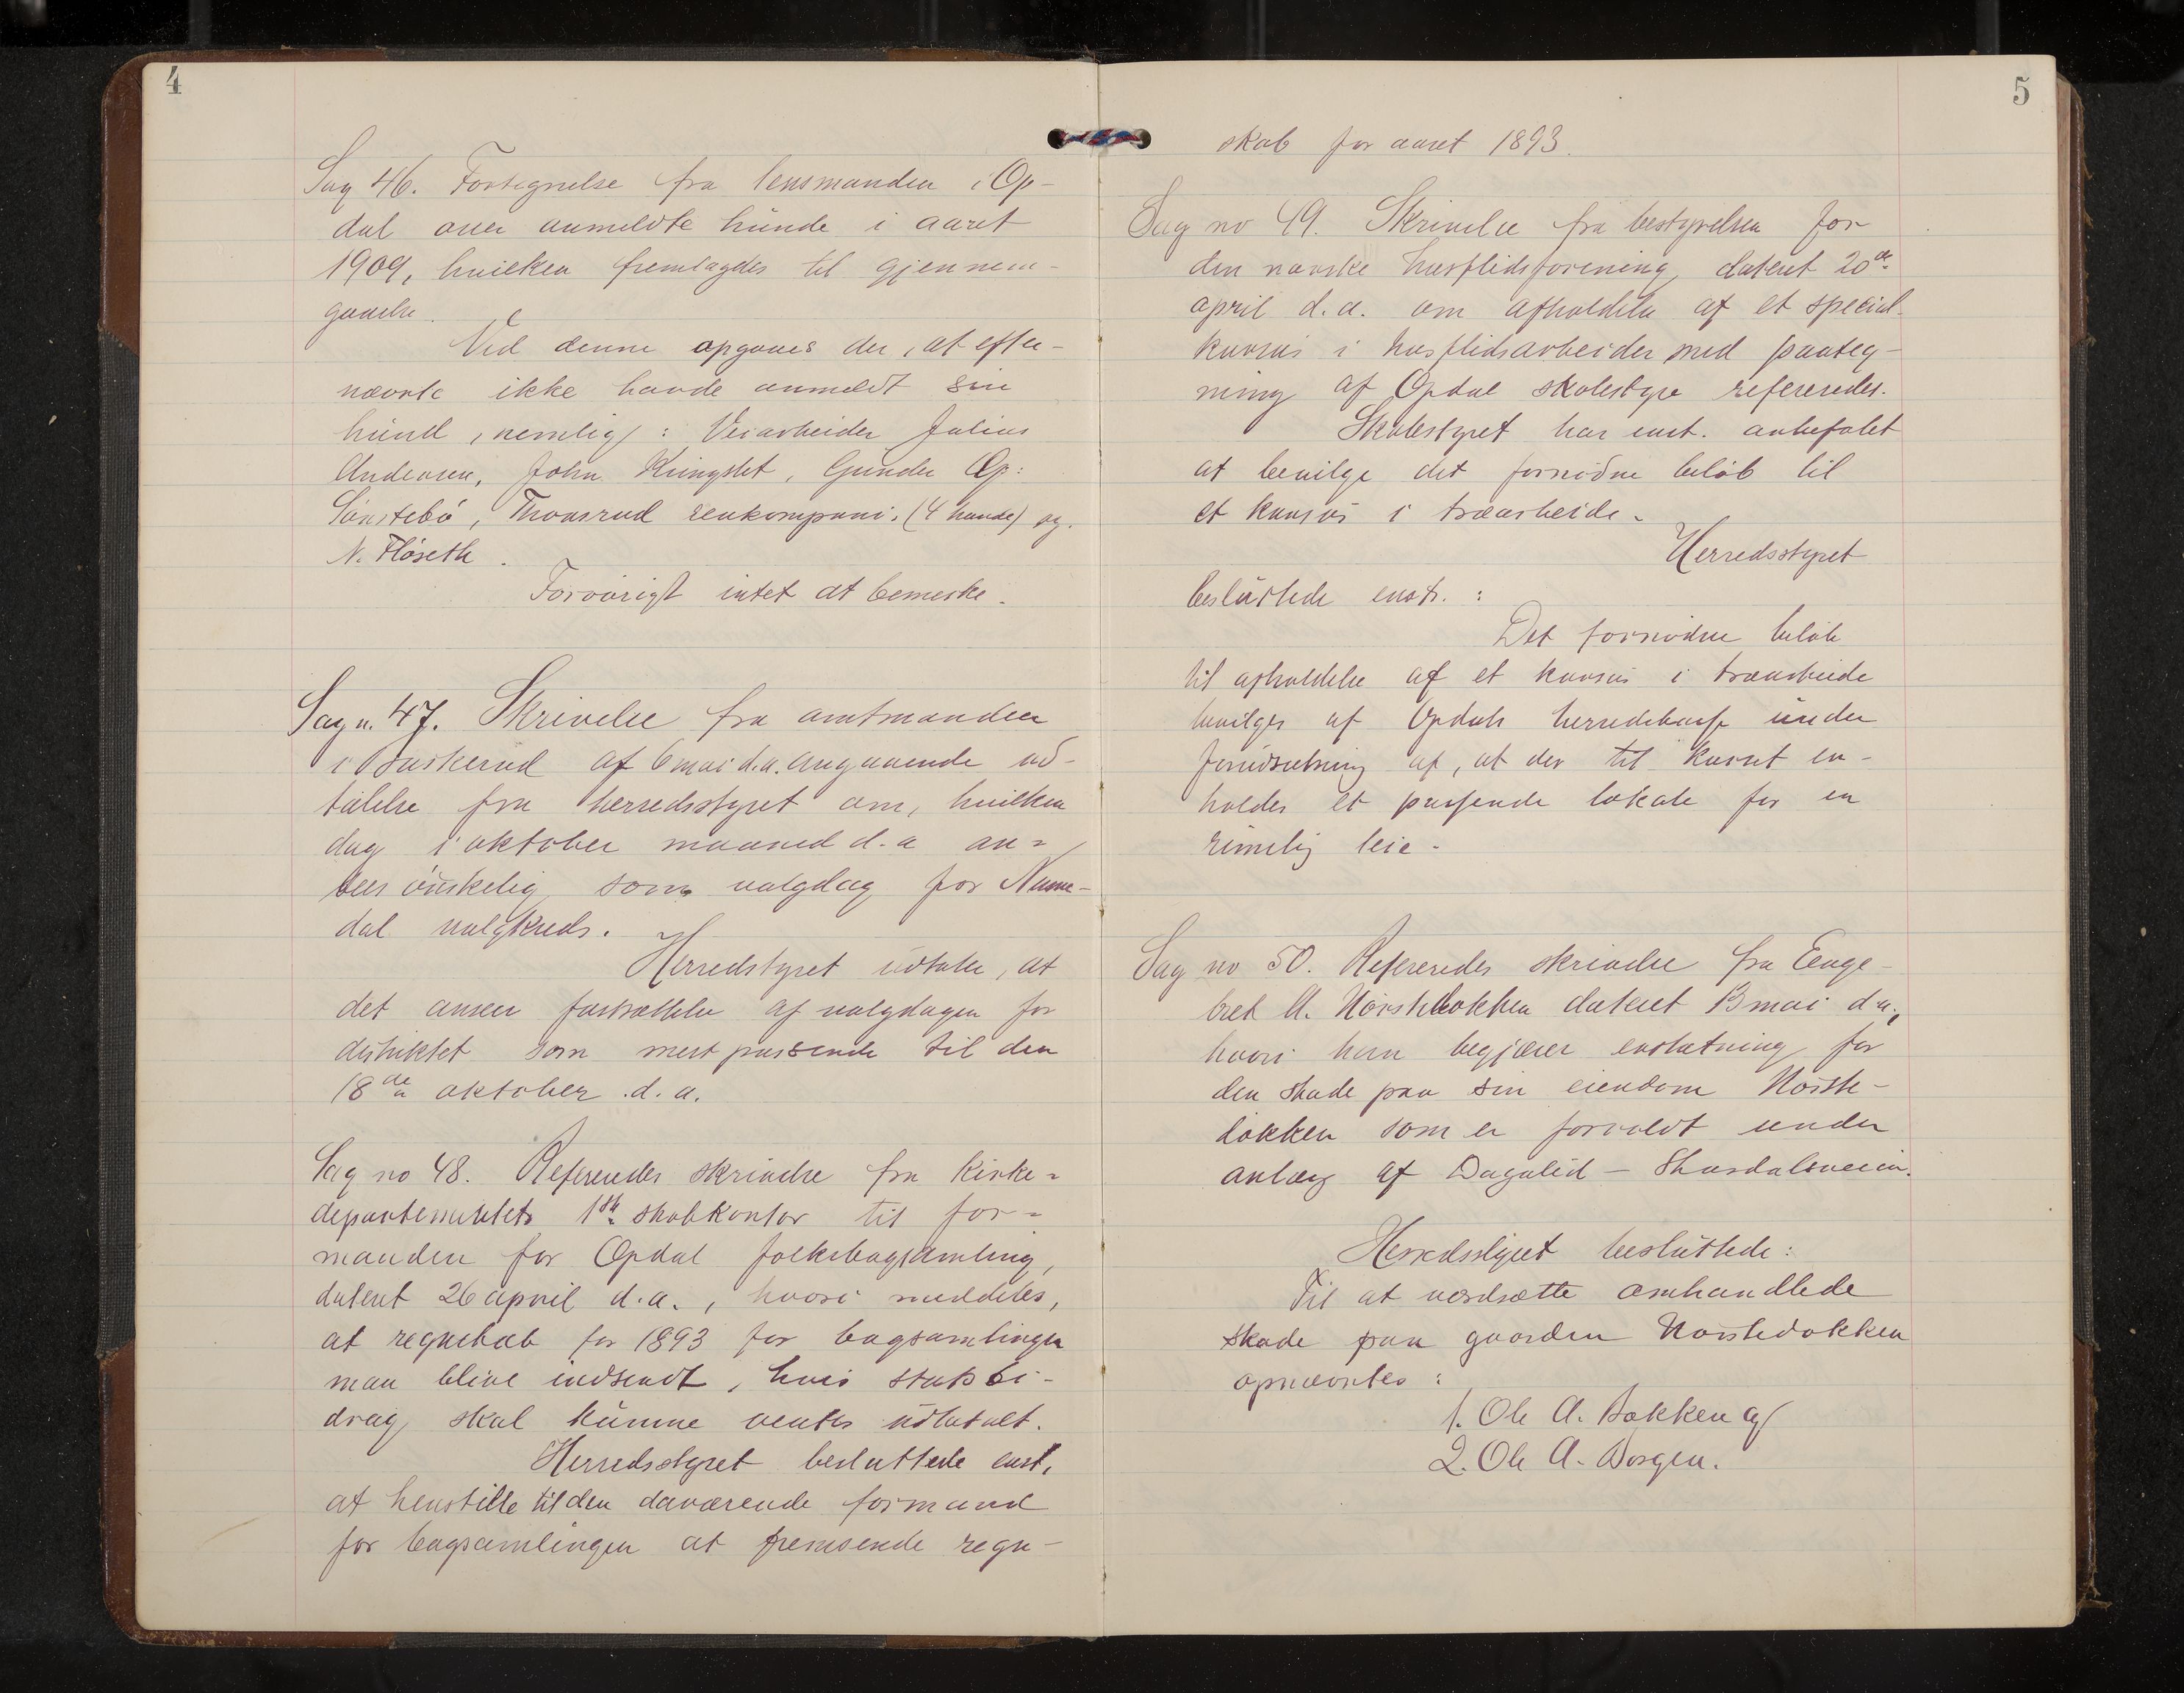 4
Sag 46. Fortegnelse fra lensmanden i Op-
dal over anmeldte hunde i aaret
1909, hvilken fremlagdes til gjennem-
gaaelse.
Ved denne opgaves der, at efter-
nævnte ikke havde anmeldt sin
hund, nemlig: Veiarbeider Julius
Andersen, John Kringstet, Gunder Op:
Sønstebö, Thonsrud renkompani. (4 hunde) og
N. Fløseth.
Forøvrigt intet at bemerke.
Sag n. 47. Skrivelse fra amtmanden
i Buskerud af 6 mai d.a. angaaende ud-
talelse fra herredsstyret om, hvilken
dag i oktober maaned d.a an=
sees ønskelig som valgdag for Nume-
dal valgkreds.
Herredstyret udtaler, at
det anser fastsættelse af valgdagen for
distriktet som mest passende til den
18de oktober d.a.
Sag no 48. Refereredes skrivelse fra kirke=
departementets 1ste skolekontor til for=
manden for Opdal folkebogsamling,
dateret 26 april d.a., hvori meddeles,
at regnskab for 1893 for bogsamlingen
maa blive indsendt, hvis statsbi-
drag skal kunne ventes udbetalt.
Herredsstyret besluttede enst.
at henstille til den daværende formand
for bogsamlingen at fremsende regn-
5
skab for aaret 1893.
Sag no 49. Skrivelse fra bestyrelsen for
den norske husflidsforening, dateret 20de
april d.a. om afholdelse af et special-
kursus i husflidsarbeider med paateg-
ning af Opdal skolestyre refereredes.
Skolestyret har enst. anbefalet
at bevilge det fornødne beløb til
et kursus i træarbeide.
Herredsstyret
besluttede enst.:
Det fornødne beløb
til afholdelse af et kursus i træarbeide
bevilges af Opdals herredskasse under
forudsætning af, at der til kurset er-
holdes et passende lokale for en
rimelig leie.
Sag no 50. Refereredes skrivelse fra Enge-
bret A. Nørstelokken dateret 13 mai d.a.,
hvori han begjærer erstatning for
den skade paa sin eiendom Nørste-
løkken som er forvoldt under
anlæg af Dagalid - Skurdalsveien.
Herredsstyret besluttede:
Til at værdsætte omhandlede
skade paa gaarden Nørstedokken
opnævntes:
1. Ole A. Bakken og
2. Ole A. Borgen.